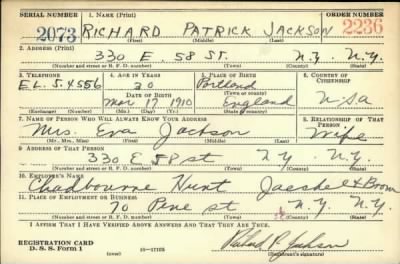 SERIAL NUMBER 1. NAME (Print) ORDER NUMBER
2073 RICHARD PATRICK JACKSON 2236
(First) (Middle) (Last)
2. ADDRESS (Print)
330 E. 58 ST. N.Y. N.Y.
(Number and street or R. F. D. number) (Town) (County) (State)
3. TELEPHONE 4. AGE IN YEARS 5. PLACE OF BIRTH 6. COUNTRY OF CITIZENSHIP
EL. 5. 4556 30 Portland USA
DATE OF BIRTH (Town or county)
Mar 17 1910 England
(Exchange) (Number) (Mo.) (Day) (Yr.) (State or country)
7. NAME OF PERSON WHO WILL ALWAYS KNOW YOUR ADDRESS 8. RELATIONSHIP OF THAT PERSON
Mrs. Eva Jackson Wife
(Mr., Mrs., Miss) (First) (Middle) (Last)
9. ADDRESS OF THAT PERSON
330 E 58 st N.Y. N.Y.
(Number and street or R. F. D. number) (Town) (County) (State)
10. EMPLOYER'S NAME
Chadbourne Hunt Jaeckel & Brown
11. PLACE OF EMPLOYMENT OR BUSINESS
70 Pine st N.Y. N.Y.
(Number and street or R. F. D. number) (Town) (County) (State)
I AFFIRM THAT I HAVE VERIFIED ABOVE ANSWERS AND THAT THEY ARE TRUE.
REGISTRATION CARD
D. S. S. Form 1 16—17105 Richard P. Jackson
(Registrant's signature)